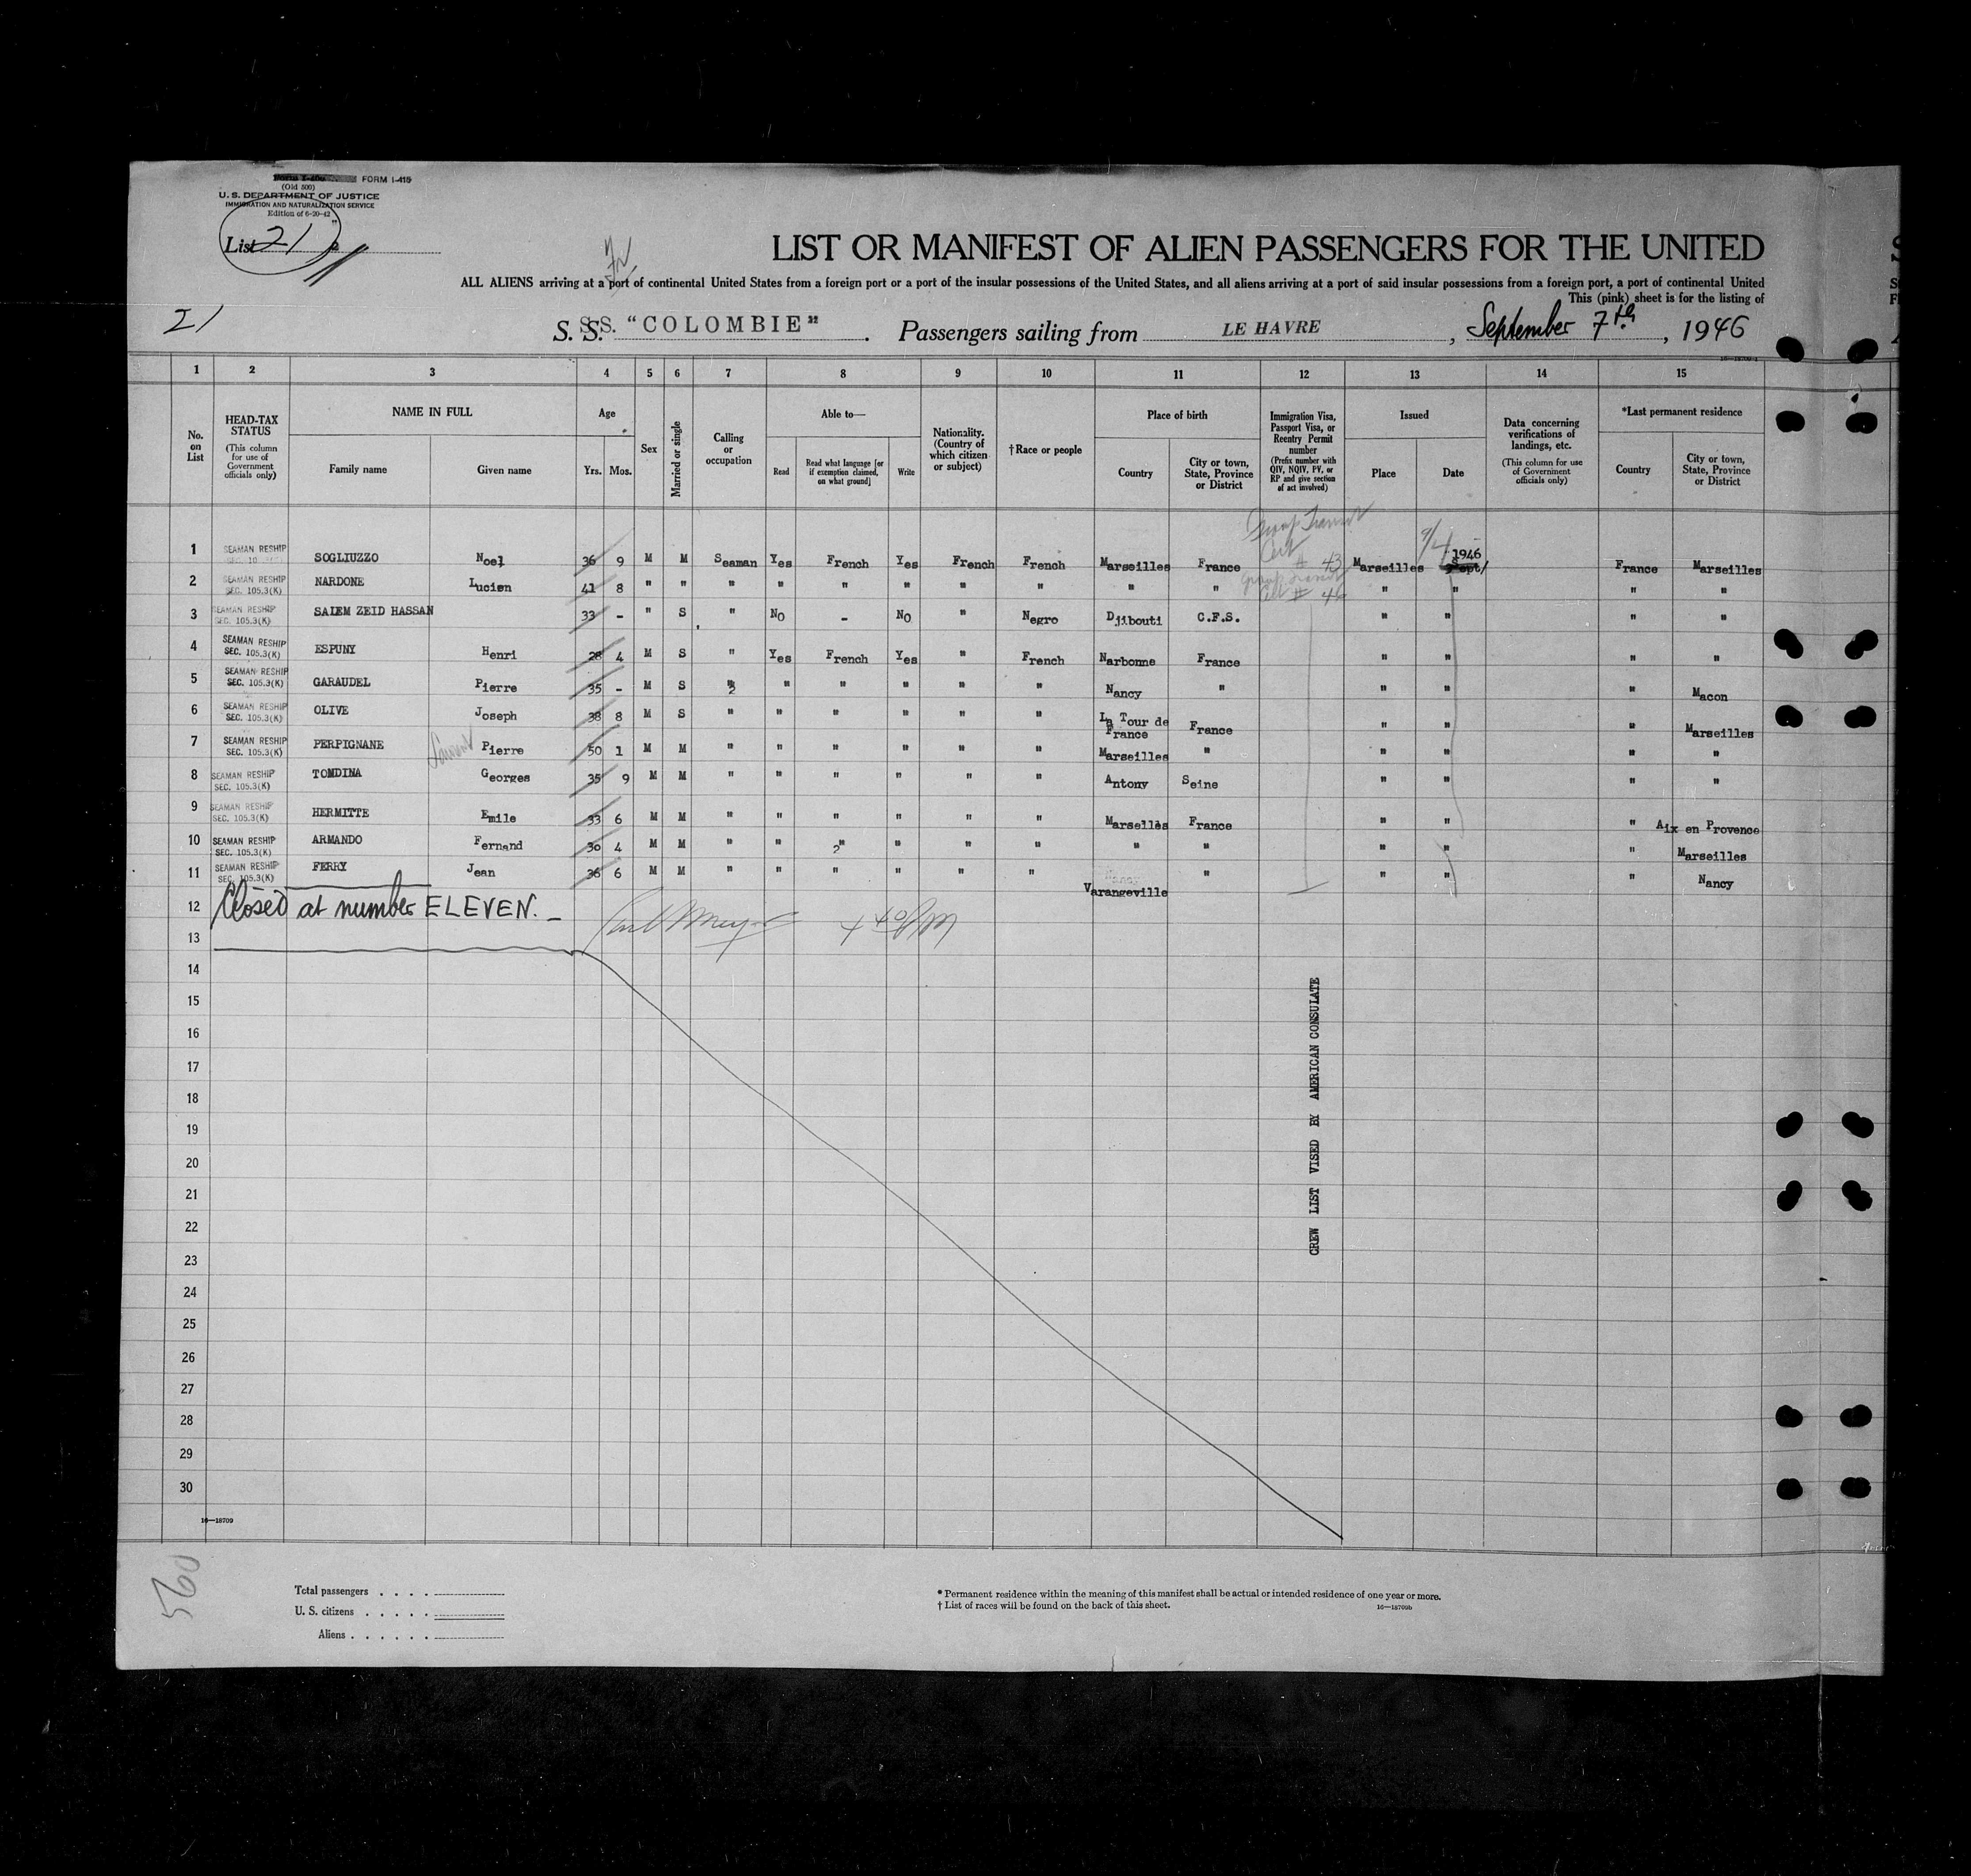 FORM I-415
(Old 500)
U. S. DEPARTMENT OF JUSTICE
IMMIGRATION AND NATURALIZATION SERVICE
Edition of 6-20-42
List 21
LIST OR MANIFEST OF ALIEN PASSENGERS FOR THE UNITED
ALL ALIENS arriving at a port of continental United States from a foreign port or a port of the insular possessions of the United States, and all aliens arriving at a port of said insular possessions from a foreign port, a port of continental United
This (pink) sheet is for the listing of
21
S. S. S.S. "COLOMBIE" . Passengers sailing from LE HAVRE , September 7th , 1946
16—18709-1
1 2 3 4 5 6 7 8 9 10 11 12 13 14 15
No. on List
HEAD-TAX STATUS (This column for use of Government officials only)
NAME IN FULL Family name Given name
Age Yrs. Mos.
Sex
Married or single
Calling or occupation
Able to— Read Read what language [or if exemption claimed, on what ground] Write
Nationality. (Country of which citizen or subject)
†Race or people
Place of birth Country City or town, State, Province or District
Immigration Visa, Passport Visa, or Reentry Permit number (Prefix number with QIV, NQIV, PV, or RP and give section of act involved)
Issued Place Date
Data concerning verifications of landings, etc. (This column for use of Government officials only)
*Last permanent residence Country City or town, State, Province or District
1 SEAMAN RESHIP SOGLIUZZO Noel 36 9 M M Seaman Yes French Yes French French Marseilles France # 43 Marseilles 9/4 1946 Sept/ France Marseilles
2 SEAMAN RESHIP SEC. 105.3(K) NARDONE Lucien 41 8 " " " " " " " " " " # 46 " " " "
3 SEAMAN RESHIP SEC. 105.3(K) SALEM ZEID HASSAN 33 - " S " No - No " Negro Djibouti C.F.S. " " " "
4 SEAMAN RESHIP SEC. 105.3(K) ESPUNY Henri 28 4 M S " Yes French Yes " French Narbonne France " " " "
5 SEAMAN RESHIP SEC. 105.3(K) GARAUDEL Pierre 35 - M S " " " " " " Nancy " " " " Macon
6 SEAMAN RESHIP SEC. 105.3(K) OLIVE Joseph 38 8 M S " " " " " " La Tour de France France " " " Marseilles
7 SEAMAN RESHIP SEC. 105.3(K) PERPIGNANE Pierre 50 1 M M " " " " " " Marseilles " " " " "
8 SEAMAN RESHIP SEC. 105.3(K) TONDINA Georges 35 9 M M " " " " " " Antony Seine " " " "
9 SEAMAN RESHIP SEC. 105.3(K) HERMITTE Emile 33 6 M M " " " " " " Marselles France " " " Aix en Provence
10 SEAMAN RESHIP SEC. 105.3(K) ARMANDO Fernand 30 4 M M " " " " " " " " " " " Marseilles
11 SEAMAN RESHIP SEC. 105.3(K) FERRY Jean 36 6 M M " " " " " " Varangeville " " " " Nancy
12 Closed at number ELEVEN. –
13
14
15
16
17
18
19
20
21
22
23
24
25
26
27
28
29
30
CREW LIST VISED BY AMERICAN CONSULATE
16—18709
560
Total passengers . . . .
U. S. citizens . . . . .
Aliens . . . . . .
* Permanent residence within the meaning of this manifest shall be actual or intended residence of one year or more.
† List of races will be found on the back of this sheet.
16—18709b